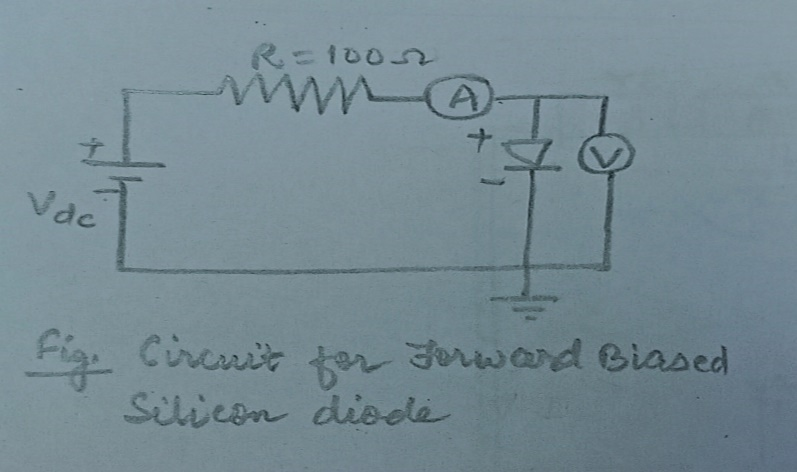 R = 100Ω
A
+
+
V
-
-
Vdc
Fig. Circuit for Forward Biased
Silicon diode